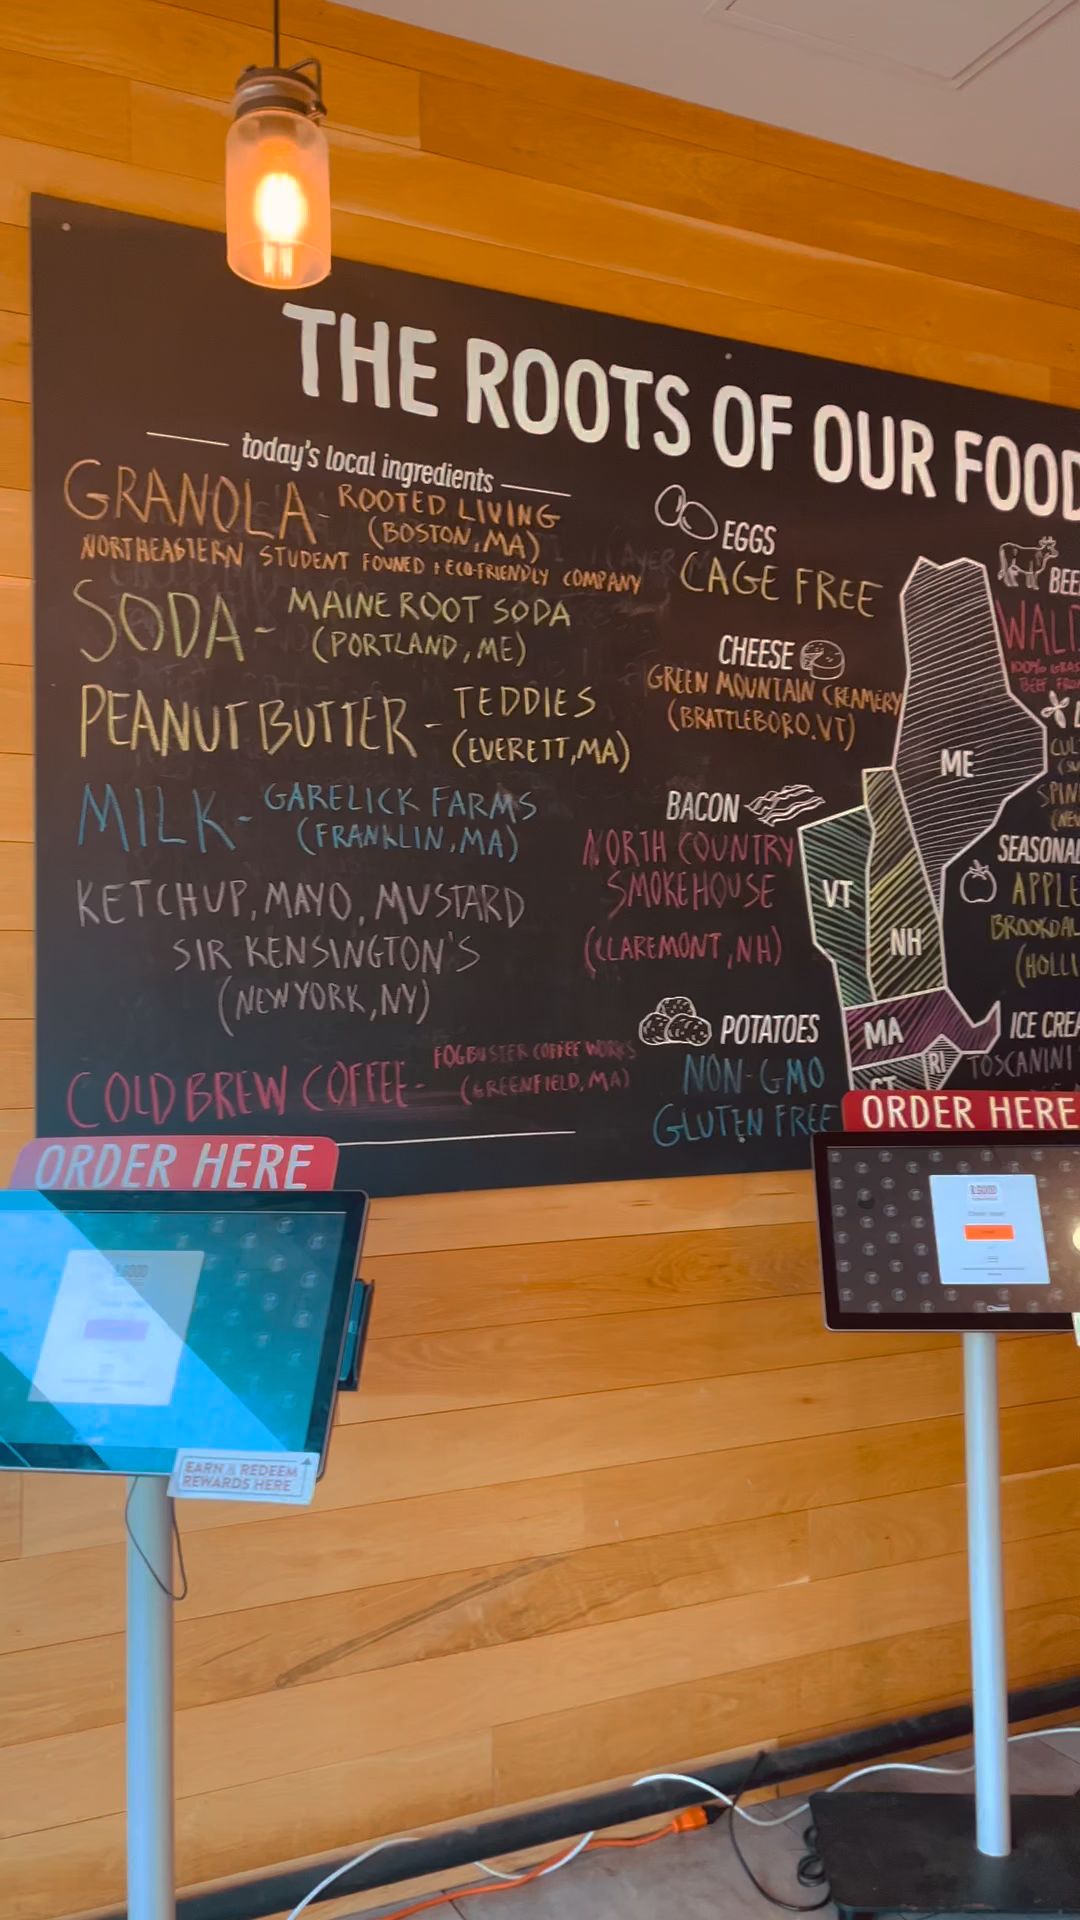 THE ROOTS OF OUR FOOD
today's local ingredients
GRANOLA - ROOTED LIVING
(BOSTON, MA)
NORTHEASTERN STUDENT FOUNED + ECO-FRIENDLY COMPANY
SODA - MAINE ROOT SODA
(PORTLAND, ME)
PEANUT BUTTER - TEDDIES
(EVERETT, MA)
MILK - GARELICK FARMS
(FRANKLIN, MA)
KETCHUP, MAYO, MUSTARD
SIR KENSINGTON'S
(NEW YORK, NY)
COLD BREW COFFEE - FOGBUSTER COFFEE WORKS
(GREENFIELD, MA)
EGGS
CAGE FREE
CHEESE
GREEN MOUNTAIN CREAMERY
(BRATTLEBORO, VT)
BACON
NORTH COUNTRY
SMOKEHOUSE
(CLAREMONT, NH)
POTATOES
NON-GMO
GLUTEN FREE
ME
VT
NH
MA
RI
CT
BEE
WAL
100% GRAS
BEEF FRO
SPIN
SEASONAL
APPLE
BROOKDAL
(HOLLI
ICE CREA
TOSCANINI
ORDER HERE
ORDER HERE
EARN & REDEEM
REWARDS HERE